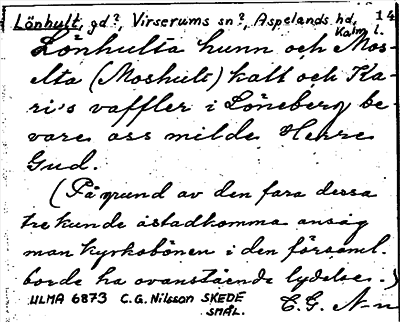 Lönhult, gd?, Virserums sn?, Aspelands hd, Kalm. l.
14
Lönhulta hunn och Mos-
elta (Moshult) katt och Ka-
ri's vaffler i Löneberg be-
vare oss milde Herre
Gud.
(På grund av den fara dessa
tre kunde åstadkomma ansåg
man kyrkobönen i den församl.
borde ha ovanstående lydelse.)
ULMA 6873 C.G. Nilsson SKEDE
SMÅL.
C.G. N-n